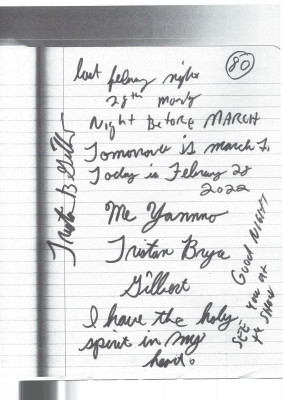 80
last febuary night
28th monday
Night Before MARCH
Tomorrow is march 1.
Today is February 28
2022
Me
Tristan Bryce
Gilbert
I have the holy
spirit in my
heart.
Tristan B Gilbert
GOOD NIGHT
SEE YOU AT
SHOW